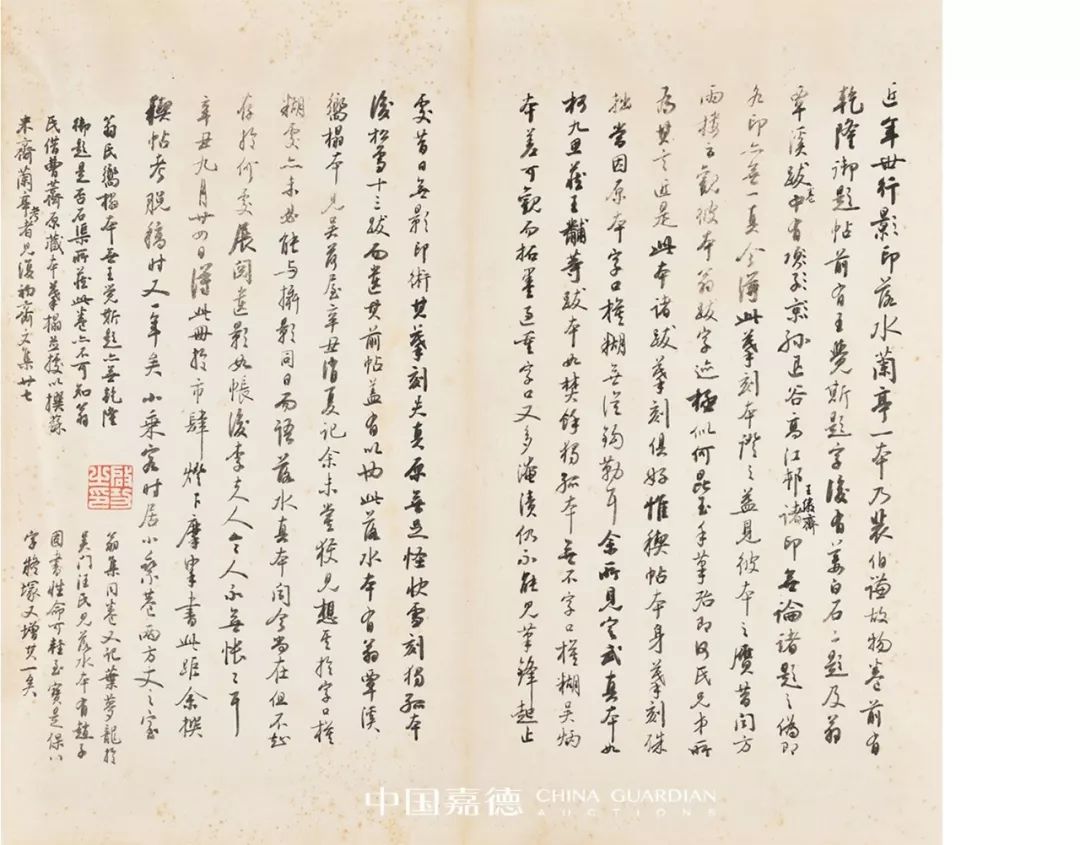 近年世行影印落水蘭亭一本乃裴伯謙故物卷前有
乾隆御題帖前有王覺斯題字後有姜白石二題及翁
覃溪跋其中有項子京孫退谷高江邨王儼齋諸印無論諸題之偽即
各印亦無一真今薄此摹刻本證之益見彼本之贋昔聞方
雨樓言觀彼本翁跋字迹極似何昆玉手筆殆即何氏兄弟所
為其言近是此本諸跋摹刻俱好惟稧帖本身摹刻殊
拙當因原本字口模糊無從鈎勒耳余所見定武真本如
柯九思藏王黼等跋本如焚餘獨孤本無不字口模糊吳炳
本差可觀而拓墨過重字口又多淹漬仍不能見筆鋒起止
處昔日無影印術其摹刻失真原無足怪快雪刻獨孤本
後松雪十三跋而遺其前帖蓋有以也此落水本有翁覃溪
嚮搨本見吳荷屋辛丑消夏記余未嘗獲見想其於字口模
糊處亦未必能與攝影同日而語落水真本聞今尚在但不知
存於何處展閱遺影如帳後李夫人令人不無悵悵耳
辛丑九月廿四日薄此冊於市肆燈下摩挲書此距余撰
稧帖考脫稿時又一年矣小乘客時居小乘巷兩方丈之室
翁氏嚮搨本無王覺斯題亦無乾隆
御題是否石渠所藏此卷亦不可知翁
氏借曹薺原藏本摹搨並據以撰蘇
米齋蘭亭考者見復初齋文集廿七
啟功之印
翁集同卷又記葉夢龍於
吳門汪氏見落水本有趙子
固書性命可輕至寶是保八
字嫁塚又增其一矣
中国嘉德 CHINA GUARDIAN
AUCTIONS